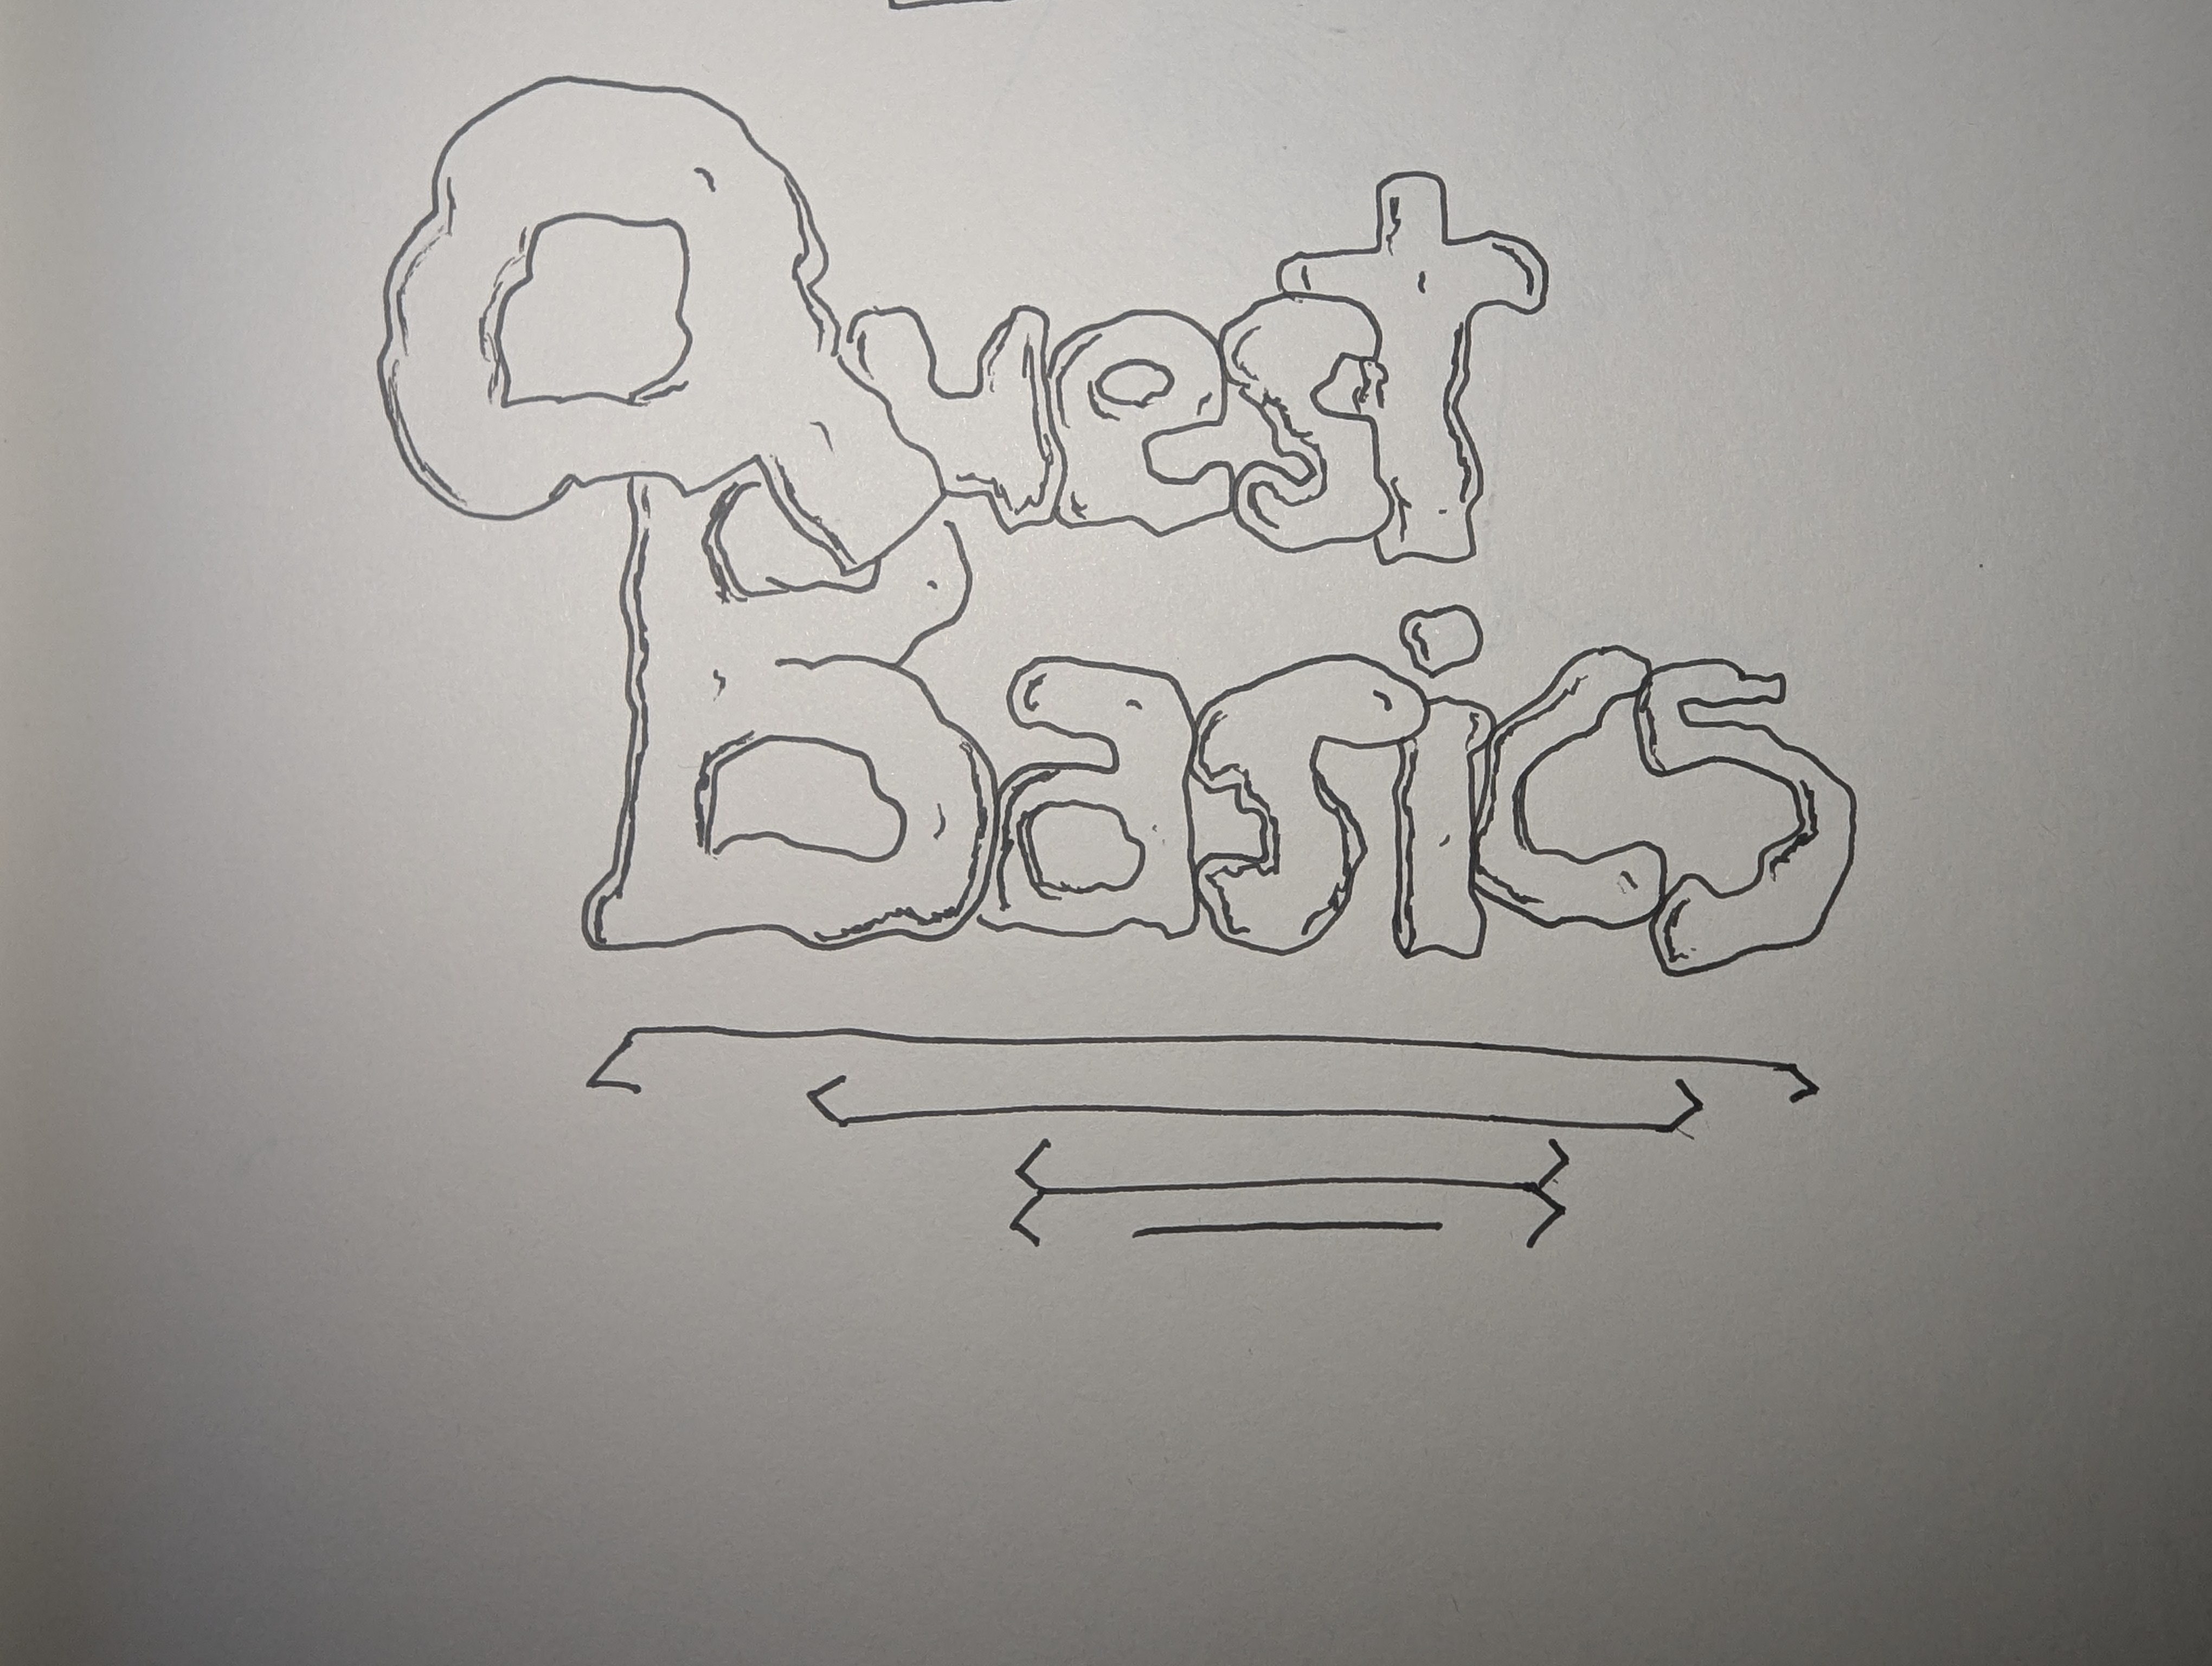 Quest
Basics